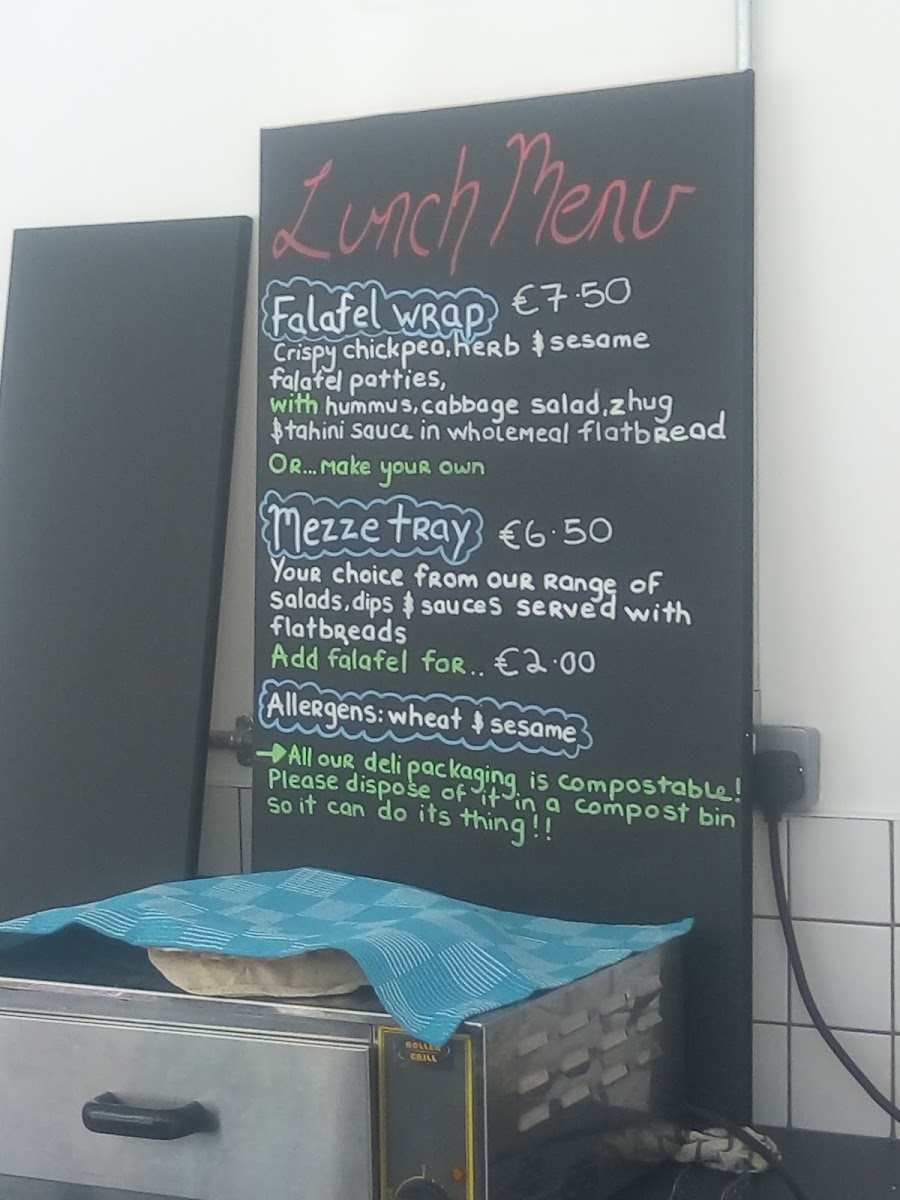 Lunch Menu
Falafel wrap €7.50
Crispy chickpea, herb & sesame
falafel patties,
with hummus, cabbage salad, zhug
& tahini sauce in wholemeal flatbread
Or... make your own
Mezze tray €6.50
Your choice from our range of
salads, dips & sauces served with
flatbreads
Add falafel for.. €2.00
Allergens: wheat & sesame
→ All our deli packaging is compostable!
Please dispose of it in a compost bin
so it can do its thing!!
ROLLER
GRILL